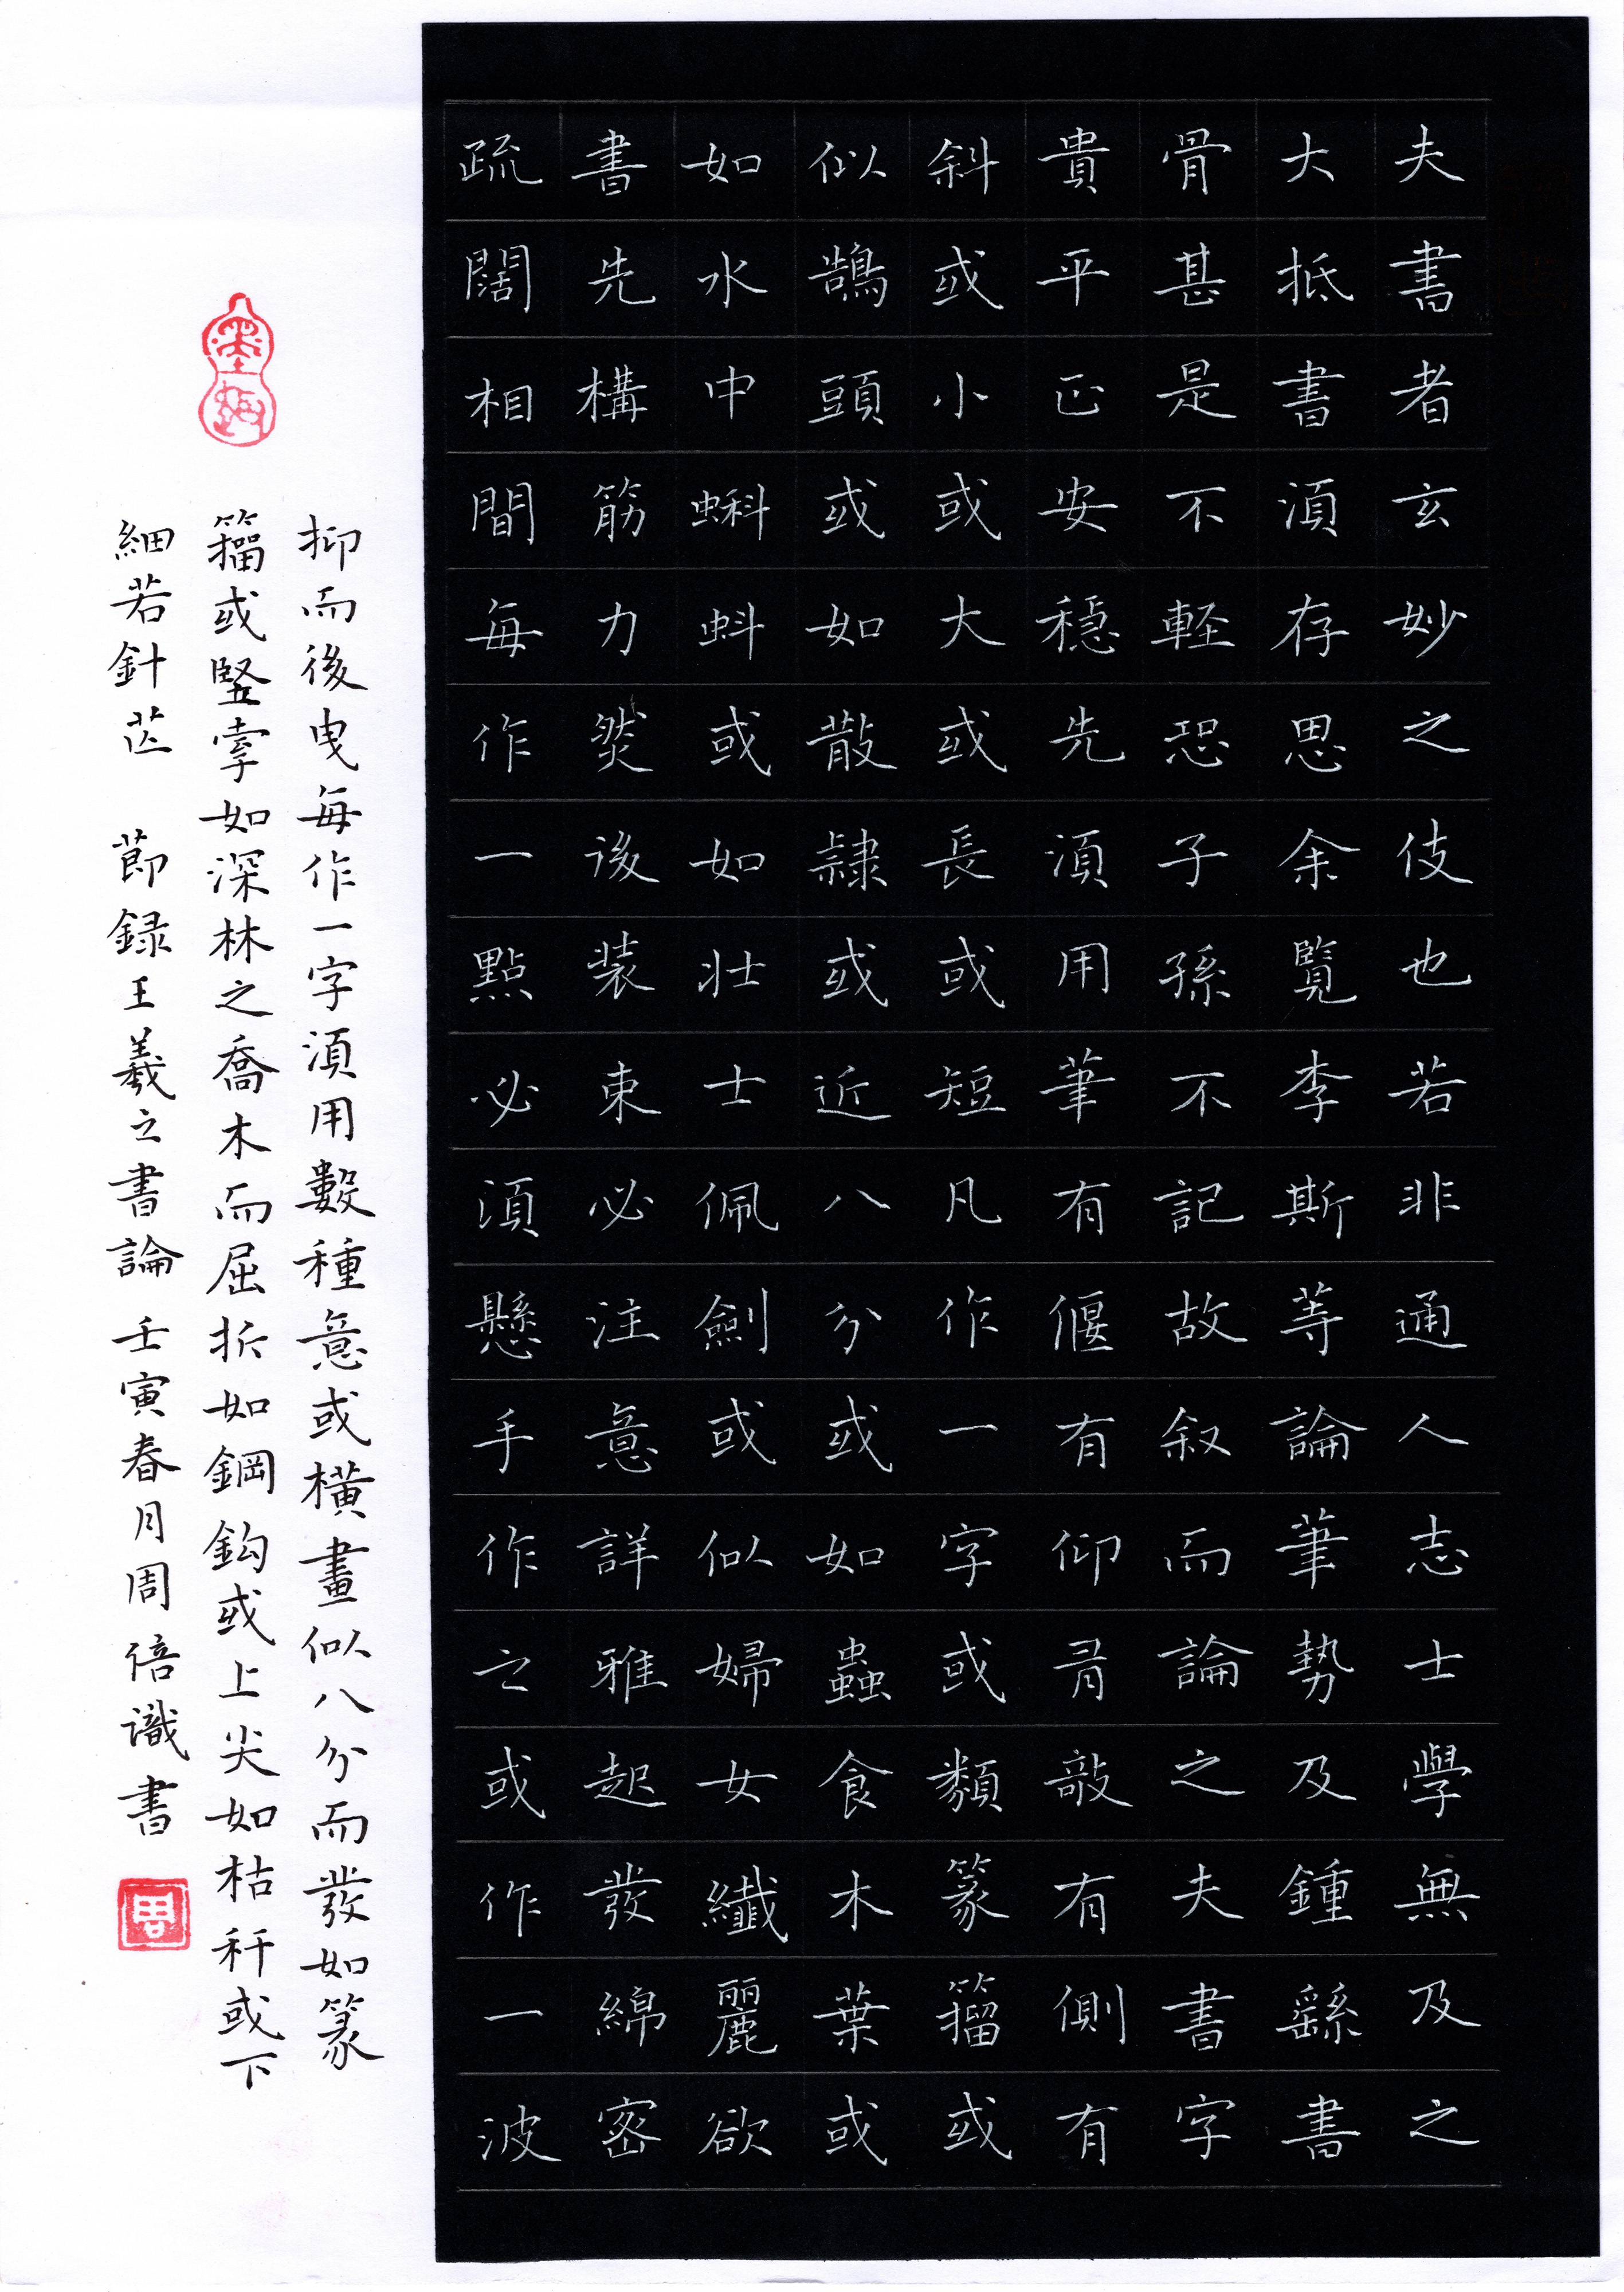 夫書者玄妙之伎也若非通人志士學無及之
大抵書須存思余覽李斯等論筆勢及鍾繇書
骨甚是不輕恐子孫不記故叙而論之夫書字
貴平正安穩先須用筆有偃有仰有敧有側有
斜或小或大或長或短凡作一字或類篆籀或
似鵠頭或如散隸或近八分或如蟲食木葉或
如水中蝌蚪或如壯士佩劍或似婦女纖麗欲
書先構筋力然後裝束必注意詳雅起發綿密
疏闊相間每作一點必須懸手作之或作一波
抑而後曳每作一字須用數種意或橫畫似八分而發如篆
籀或豎牽如深林之喬木而屈折如鋼鈎或上尖如枯秆或下
細若針芒 節録王羲之書論 壬寅春月周倍識書
周